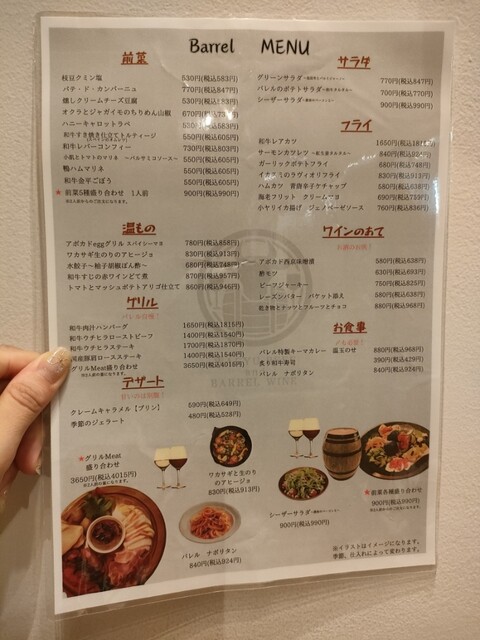 Barrel MENU
前菜
枝豆クミン塩 530円(税込583円)
パテ・ド・カンパーニュ 770円(税込847円)
燻しクリームチーズ豆腐 530円(税込583円)
オクラとジャガイモのちりめん山椒 670円(税込
ハニーキャロットラペ 530円(税込583円)
和牛すき焼き仕立てトルティージ 550円(税込605円)
和牛レバーコンフィー 730円(税込803円)
小肌とトマトのマリネ ~バルサミコソース~ 550円(税込605円)
鴨ハムマリネ 550円(税込605円)
和牛金平ごぼう 550円(税込605円)
★前菜5種盛り合わせ 1人前 900円(税込990円)
※2人前からのご注文になります。
温もの
アボカドeggグリル スパイシーマヨ 780円(税込858円)
ワカサギ生のりのアヒージョ 830円(税込913円)
水餃子~柚子胡椒ぽん酢~ 680円(税込748円)
和牛すじの赤ワインどて煮 870円(税込957円)
トマトとマッシュポテトアリゴ仕立て 860円(税込946円)
グリル
バレル自慢!
和牛肉汁ハンバーグ 1650円(税込1815円)
和牛ウチヒラローストビーフ 1400円(税込1540円)
和牛ウチヒラステーキ 1700円(税込1870円)
国産豚肩ロースステーキ 1400円(税込1540円)
グリルMeat盛り合わせ 3650円(税込4015円)
デザート
甘いのは別腹!
クレームキャラメル【プリン】 590円(税込649円)
季節のジェラート 480円(税込528円)
サラダ
グリーンサラダ 770円(税込847円)
バレルのポテトサラダ 700円(税込770円)
シーザーサラダ 900円(税込990円)
フライ
和牛レアカツ 1650円(税込1815円)
サーモンカツレツ 840円(税込924円)
ガーリックポテトフライ 680円(税込748円)
イカスミのラヴィオリフライ 830円(税込913円)
ハムカツ 青唐辛子ケチャップ 580円(税込638円)
海老フリット クリームマヨ 690円(税込759円)
小ヤリイカ揚げ ジェノベーゼソース 760円(税込836円)
ワインのあて
お酒のお供!
アボカド西京味噌漬 580円(税込638円)
酢モツ 630円(税込693円)
ビーフジャーキー 750円(税込825円)
レーズンバター バケット添え 580円(税込638円)
乾き物とナッツとフルーツとチョコ 880円(税込968円)
お食事
〆も必要!
バレル特製キーマカレー 温玉のせ 880円(税込968円)
炙り和牛寿司 390円(税込429円)
バレル ナポリタン 840円(税込924円)
BARREL WINE
★グリルMeat
盛り合わせ
3650円(税込4015円)
ワカサギと生のり
のアヒージョ
830円(税込913円)
バレル ナポリタン
840円(税込934円)
シーザーサラダ
900円(税込990円)
★前菜各種盛り合わせ
900円(税込990円)
※2人前からのご注文になります。
※イラストはイメージになります。
季節、仕入れによって変わります。